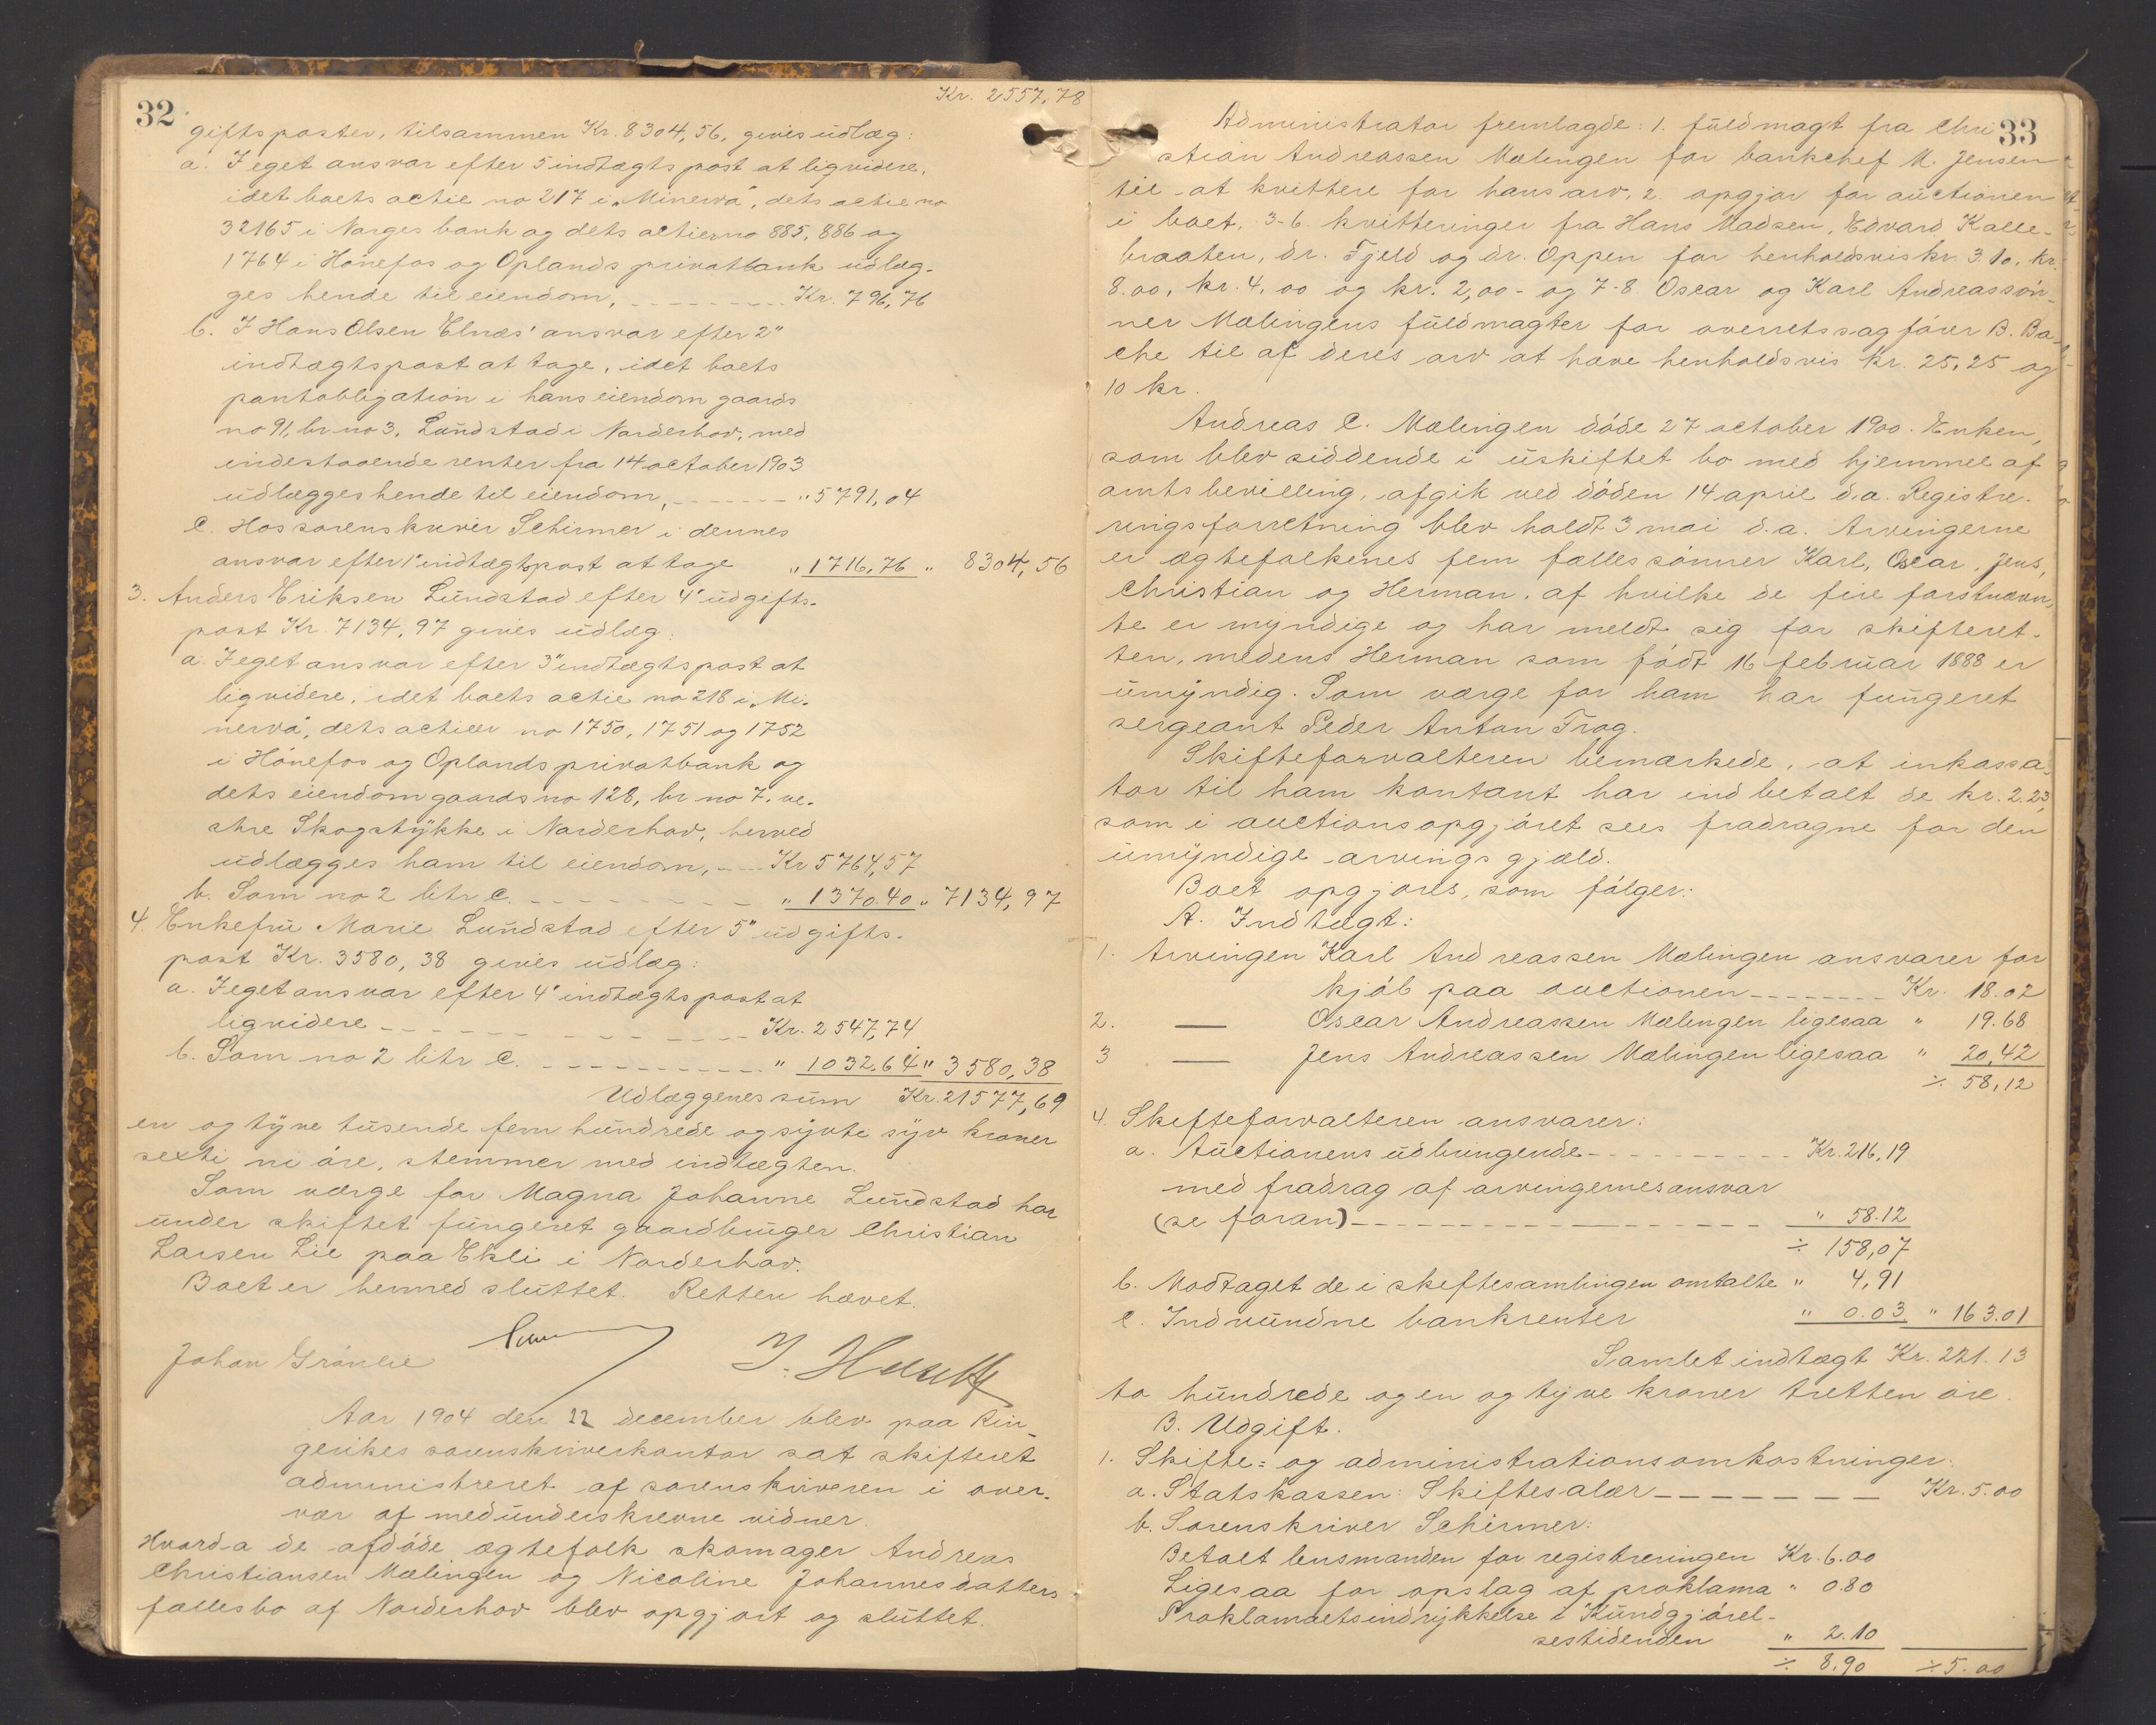 Kr. 2557,78
32
giftsposter, tilsammen Kr. 8304,56, gives udlæg:
a. I eget ansvar efter 5 indtægtspost at ligvidere,
idet boets actie no 217 i „Minerva", dets actie no
32165 i Norges bank og dets actier no 885, 886 og
1764 i Hönefos og Oplands privatbank udlæg-
ges hende til eiendom, - - - - Kr. 796,76
b. I Hans Olsen Elnæs' ansvar efter 2"
indtægtspost at tage, idet boets
pantobligation i hans eiendom gaards
no 91, br no 3, Lundstad i Norderhov, med
indestaaende renter fra 14 october 1903
udlægges hende til eiendom, - - - - " 5791,04
c. Hos sorenskriver Schirmer i dennes
ansvar efter 1" indtægtspost at tage " 1716,76 " 8304,56
3. Anders Eriksen Lundstad efter 4" udgifts-
post Kr. 7134,97 gives udlæg:
a. I eget ansvar efter 3" indtægtspost at
ligvidere, idet boets actie no 218 i „Mi-
nerva", dets actier no 1750, 1751 og 1752
i Hönefos og Oplands privatbank og
dets eiendom gaards no 128, br no 7, ve-
stre Skogstykke i Norderhov, herved
udlægges ham til eiendom, - - Kr 5764,57
b. Som no 2 litr c. - - - - " 1370.40 " 7134,97
4. Enkefru Marie Lundstad efter 5" udgifts-
post Kr. 3580,38 gives udlæg:
a. I eget ansvar efter 4" indtægtspost at
ligvidere - - - - Kr. 2547,74
b. Som no 2 litr c. - - - - " 1032.64 " 3580,38
Udlæggenes sum Kr. 21577,69
en og tyve tusende fem hundrede og sytti syv kroner
sexti ni öre, stemmer med indtægten.
Som værge for Magna Johanne Lundstad har
under skiftet fungeret gaardbruger Christian
Larsen Lie paa Ekli i Norderhov.
Boet er hermed sluttet. Retten hævet.
Johan Grönlie
Aar 1904 den 22 december blev paa Rin-
gerikes sorenskriverkontor sat skifteret
administreret af sorenskriveren i over-
vær af medunderskrevne vidner.
Hvorda de afdöde ægtefolk skomager Andreas
Christiansen Mælingen og Nicoline Johannesdatters
fællesbo af Norderhov blev opgjort og sluttet.
33
Administrator fremlagde: 1. fuldmagt fra Chri
stian Andreassen Mælingen for bankchef M. Jensen
til at kvittere for hans arv, 2. opgjör for auctionen
i boet, 3-6. kvitteringer fra Hans Madsen, Edvard Kalle-
braaten, dr. Fjeld og dr. Oppen for henholdsvis kr. 3.10, kr.
8.00, kr. 4,00 og kr. 2,00 - og 7-8 Oscar og Karl Andreassön-
ner Mælingens fuldmagter for overretssagförer B. Ba-
che til af deres arv at hæve henholdsvis kr. 25,25 og
10 kr.
Andreas C. Mælingen döde 27 october 1900. Enken,
som blev siddende i uskiftet bo med hjemmel af
amtsbevilling, afgik ved döden 14 april d.a. Registre-
ringsforretning blev holdt 3 mai d.a. Arvingerne
er ægtefolkenes fem fælles sönner Karl, Oscar, Jens,
Christian og Herman, af hvilke de fire förstnævn-
te er myndige og har meldt sig for skifteret-
ten, medens Herman som födt 16 februar 1888 er
umyndig. Som værge for ham har fungeret
sergeant Peder Anton Frog.
Skifteforvalteren bemærkede, at inkassa-
tor til ham kontant har indbetalt de kr. 2.23,
som i auctionsopgjöret sees fradragne for den
umyndige arvings gjæld.
Boet opgjöres, som fölger:
A. Indtægt:
1. Arvingen Karl Andreassen Mælingen ansvarer for
kjöb paa auctionen - - - - Kr. 18.02
2. — Oscar Andreassen Mælingen ligesaa " 19.68
3 — Jens Andreassen Mælingen ligesaa " 20,42
÷ 58,12
4. Skifteforvalteren ansvarer:
a. Auctionens udbringende - - - - Kr. 216,19
med fradrag af arvingernes ansvar
(se foran) - - - - " 58.12
÷ 158,07
b. Modtaget de i skiftesamlingen omtalte " 4,91
c. Indvundne bankrenter " 0.03 " 163.01
Samlet indtægt Kr. 221.13
to hundrede og en og tyve kroner tretten öre.
B. Udgift.
1. Skifte= og administrationsomkostninger:
a. Statskassen: Skiftesalær - - - - Kr. 5.00
b. Sorenskriver Schirmer:
Betalt lensmanden for registreringen Kr. 6.00
Ligesaa for opslag af proklama " 0.80
Proklamaets indrykkelse i Kundgjörel-
sestidenden " 2.10
÷ 8.90 ÷ 5.00